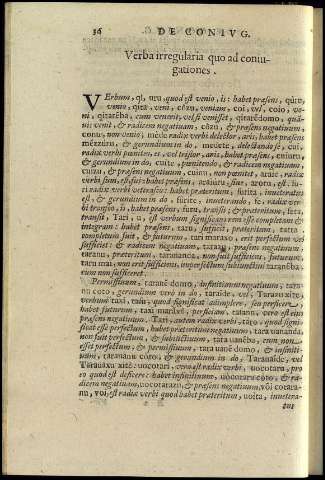 36 DE CONIVG.
Verba irregularia quo ad coniu-
gationes.
VErbum, qi, uru, quod est venio, is: habet præsens, qùru,
venio, qita, veni, côzu, veniam, coi, vel, coio, ve-
ni, qitarẽba, cum venerit, vel si venisset, qitarẽdomo, quã-
uis venit, & radicem negatiuam, còzu, & præsens negatiuum,
conu, non venit; mede radix verbi delector, aris, habet præsens
mèzzùru, & gerundium in do, medete, delectando se, cui,
radix verbi pœniteo, et, vel tristor, aris, habet præsens, cuiuru,
& gerundium in do, cuite, pœnitendo, & radicem negatiuam
cuizu, & præsens negatiuum, cuinu, non pœnitet, araie, radix
verbi sum, est, fui: habet præsens, araiuru, siue, aroru, est, fu-
ri, radix verbi veterasco: habet præsens, furiuru, inueteratus
est, & gerundium in do, furite, inueterando, fe, radix ver
bi transeo, is, habet præsens, furu, transit; & præteritum, feta,
transÿt, Tari, u, est verbum significans rem esse completam &
integram: habet præsens, taru, sufficit, præteritum, tatta
completum est, futurum, tar maraxo, erit perfectum vel
sufficiet & radicem negatiuam, tarazu, præsens negatiuum,
taranu, præteritum, tarananda, non satis sufficiens, futurum,
taru mai, non erit sufficiens, imperfectũ subiunctiui taranẽba
cum non sufficeret.
Permissiuum, taranẽ domo, infinitiuum negatiuum, tara-
nu coto, gerundium vero in do, taraide, vel, Tarazu xite,
verbum taxi, taiu, quod significat adimplere, seu perficere
habet futurum, taxi maraxò, perficiam, tatanu, vero est eius
præsens negatiuum. Tari, autem radix verbi, taro, quod signi-
ficat esse perfectum, habet præteritum negatiuum, tara uananda,
non fuit perfectum, & subiunctiuum, tara uanẽba, cum non
esset perfectum, & permissiuum, tara uanẽ domo, & infiniti-
uum, tarauanu coto, & gerundium in do, Taraùaide, vel
Tarauazu xite: uocotari, vero est radix verbi, uocotaru, pro
eo quod est deficere: habet infinitiuum, uocotaru coto, & ra-
dicem negatiuam, uocotarazu, & præsens negatiuum, vòi cotara-
nu, voi, est radix verbi quod habet præteritum, uoita, inuetera-
tus